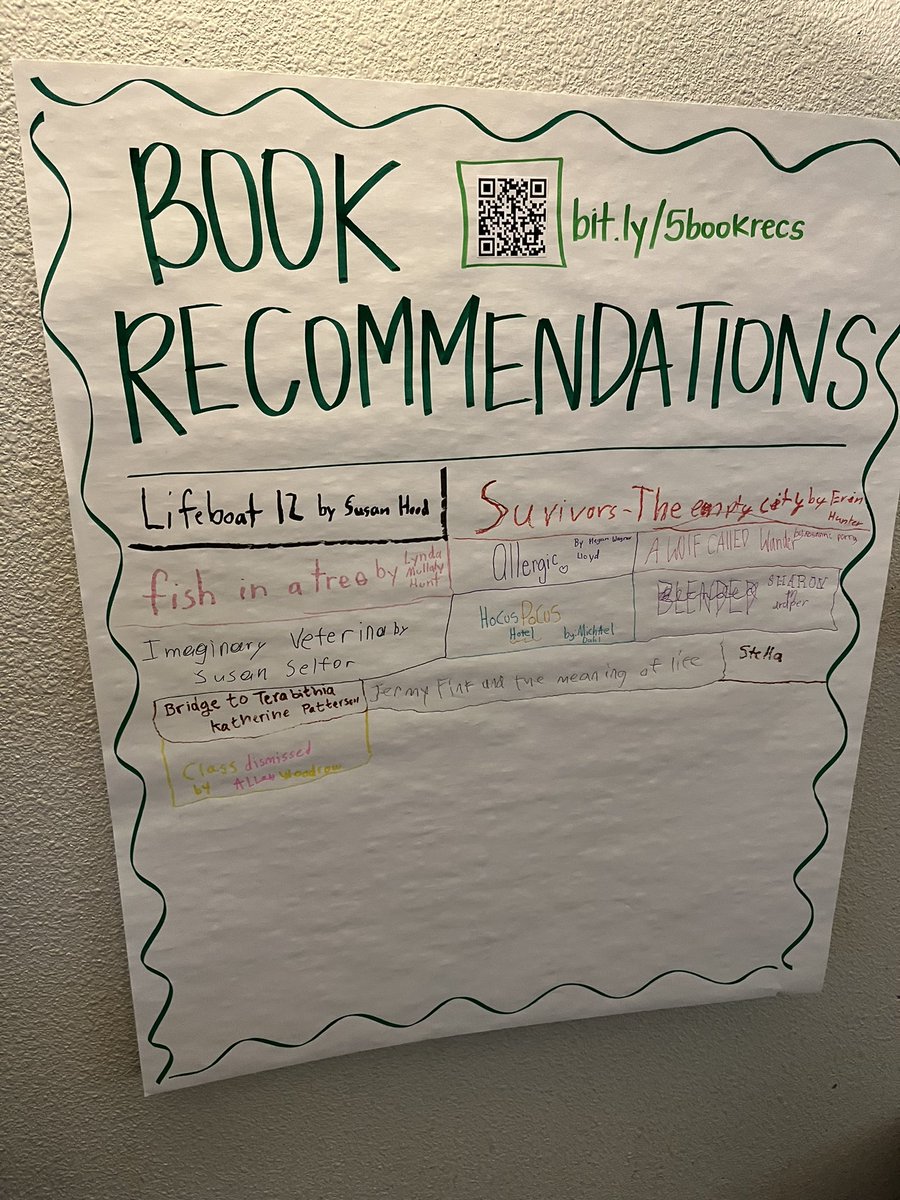 BOOK
bit.ly/5bookrecs
RECOMMENDATIONS
Lifeboat 12 by Susan Hood
Survivors-The empty city by Erin
Hunter
fish in a tree by Lynda
Mullaly
Hunt
allergic
By Megan Wagner
Lloyd
A WOLF CALLED Wander
Imaginary Veterina by
Susan Selfor
HOCUS POCUS
Hotel
by: Michael
Dahl
BLENDED SHARON
Bridge to Terabithia
Katherine Patterson
Jermy Fink and the meaning of life
Stella
Class dismissed
by Allan Woodrow